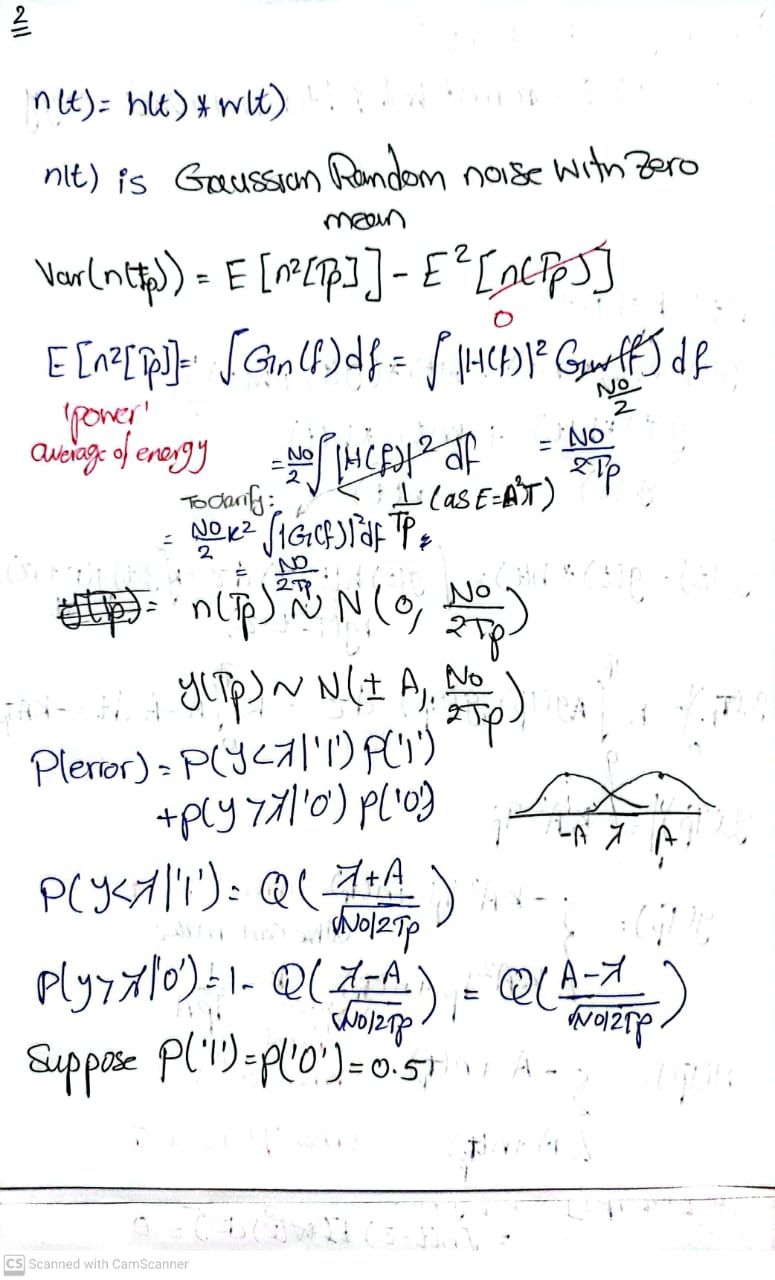 2
n(t) = h(t) * w(t)
n(t) is Gaussian Random noise with Zero
mean
Var(n(Tp)) = E [n²[Tp]] - E² [n(Tp)]
0
E [n²[Tp]] = ∫ Gn(f) df = ∫ |H(f)|² Gw(f) df
No/2
'power'
average of energy
= No/2 ∫ |H(f)|² df = No/2Tp
1/Tp (as E=A²T)
To clarify:
= No/2 k² ∫ |G(f)|² df
= No/2Tp
n(Tp) ~ N(0, No/2Tp)
y(Tp) ~ N(± A, No/2Tp)
P(error) = P(y<λ|'1') P('1')
+P(y>λ|'0') P('0')
-A λ A
P(y<λ|'1') = Q( λ+A / √No/2Tp )
P(y>λ|'0') = 1- Q( λ-A / √No/2Tp ) = Q( A-λ / √No/2Tp )
Suppose P('1')=P('0')=0.5
CS Scanned with CamScanner